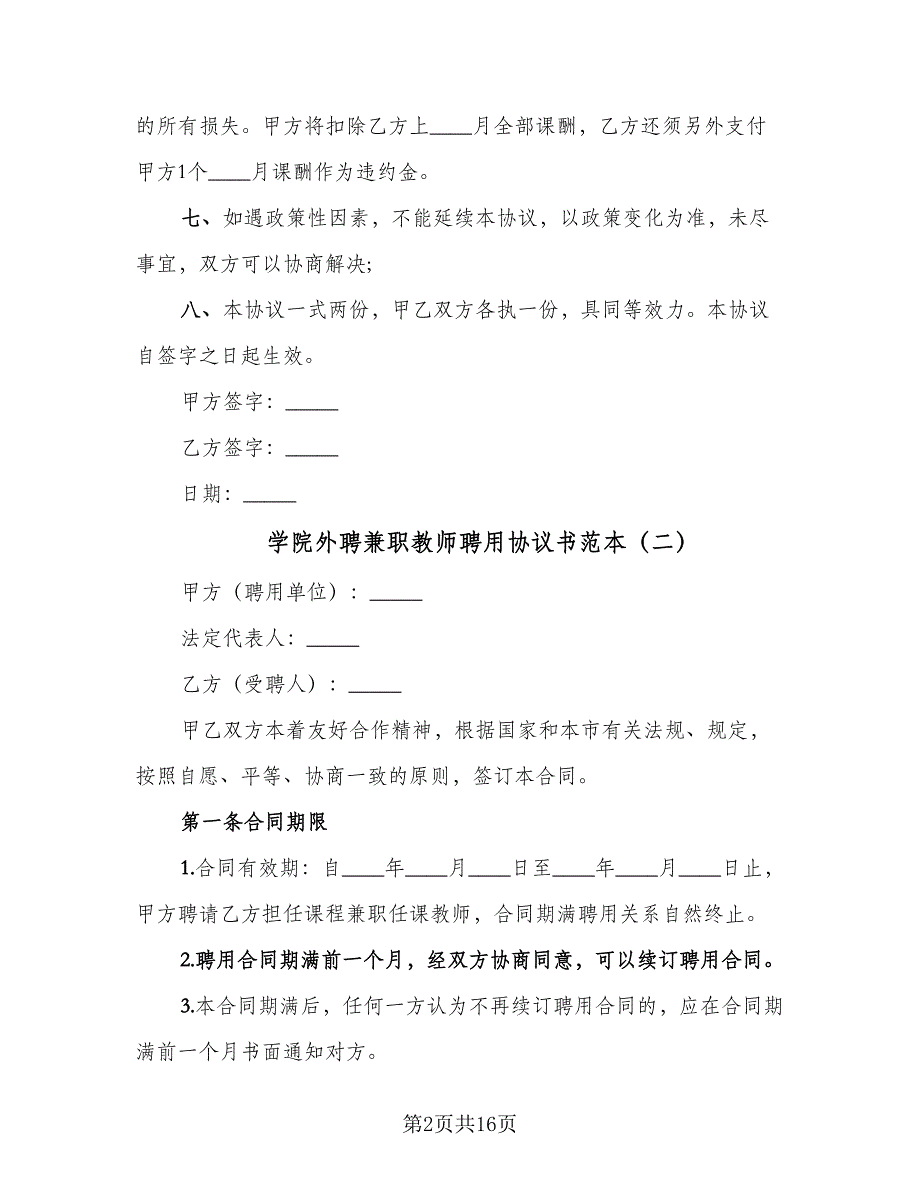 的所有损失。甲方将扣除乙方上____月全部课酬，乙方还须另外支付
甲方1个____月课酬作为违约金。
七、如遇政策性因素，不能延续本协议，以政策变化为准，未尽
事宜，双方可以协商解决;
八、本协议一式两份，甲乙双方各执一份，具同等效力。本协议
自签字之日起生效。
甲方签字：_____
乙方签字：_____
日期：_____
学院外聘兼职教师聘用协议书范本（二）
甲方（聘用单位）：_____
法定代表人：_____
乙方（受聘人）：_____
甲乙双方本着友好合作精神，根据国家和本市有关法规、规定，
按照自愿、平等、协商一致的原则，签订本合同。
第一条合同期限
1.合同有效期：自____年____月____日至____年____月____日止，
甲方聘请乙方担任课程兼职任课教师，合同期满聘用关系自然终止。
2.聘用合同期满前一个月，经双方协商同意，可以续订聘用合同。
3.本合同期满后，任何一方认为不再续订聘用合同的，应在合同期
满前一个月书面通知对方。
第2页共16页